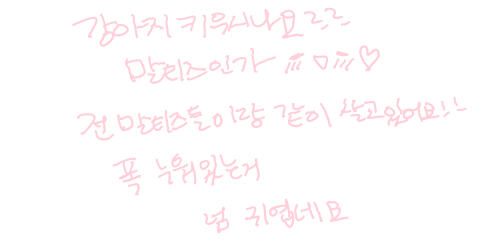 강아지 키우시나요ㄹㄹ
말티즈인가 ㅠㅁㅠ♡
전 말티즈들이랑 같이 살고있어요!!
폭 누워있는거
넘 귀엽네요